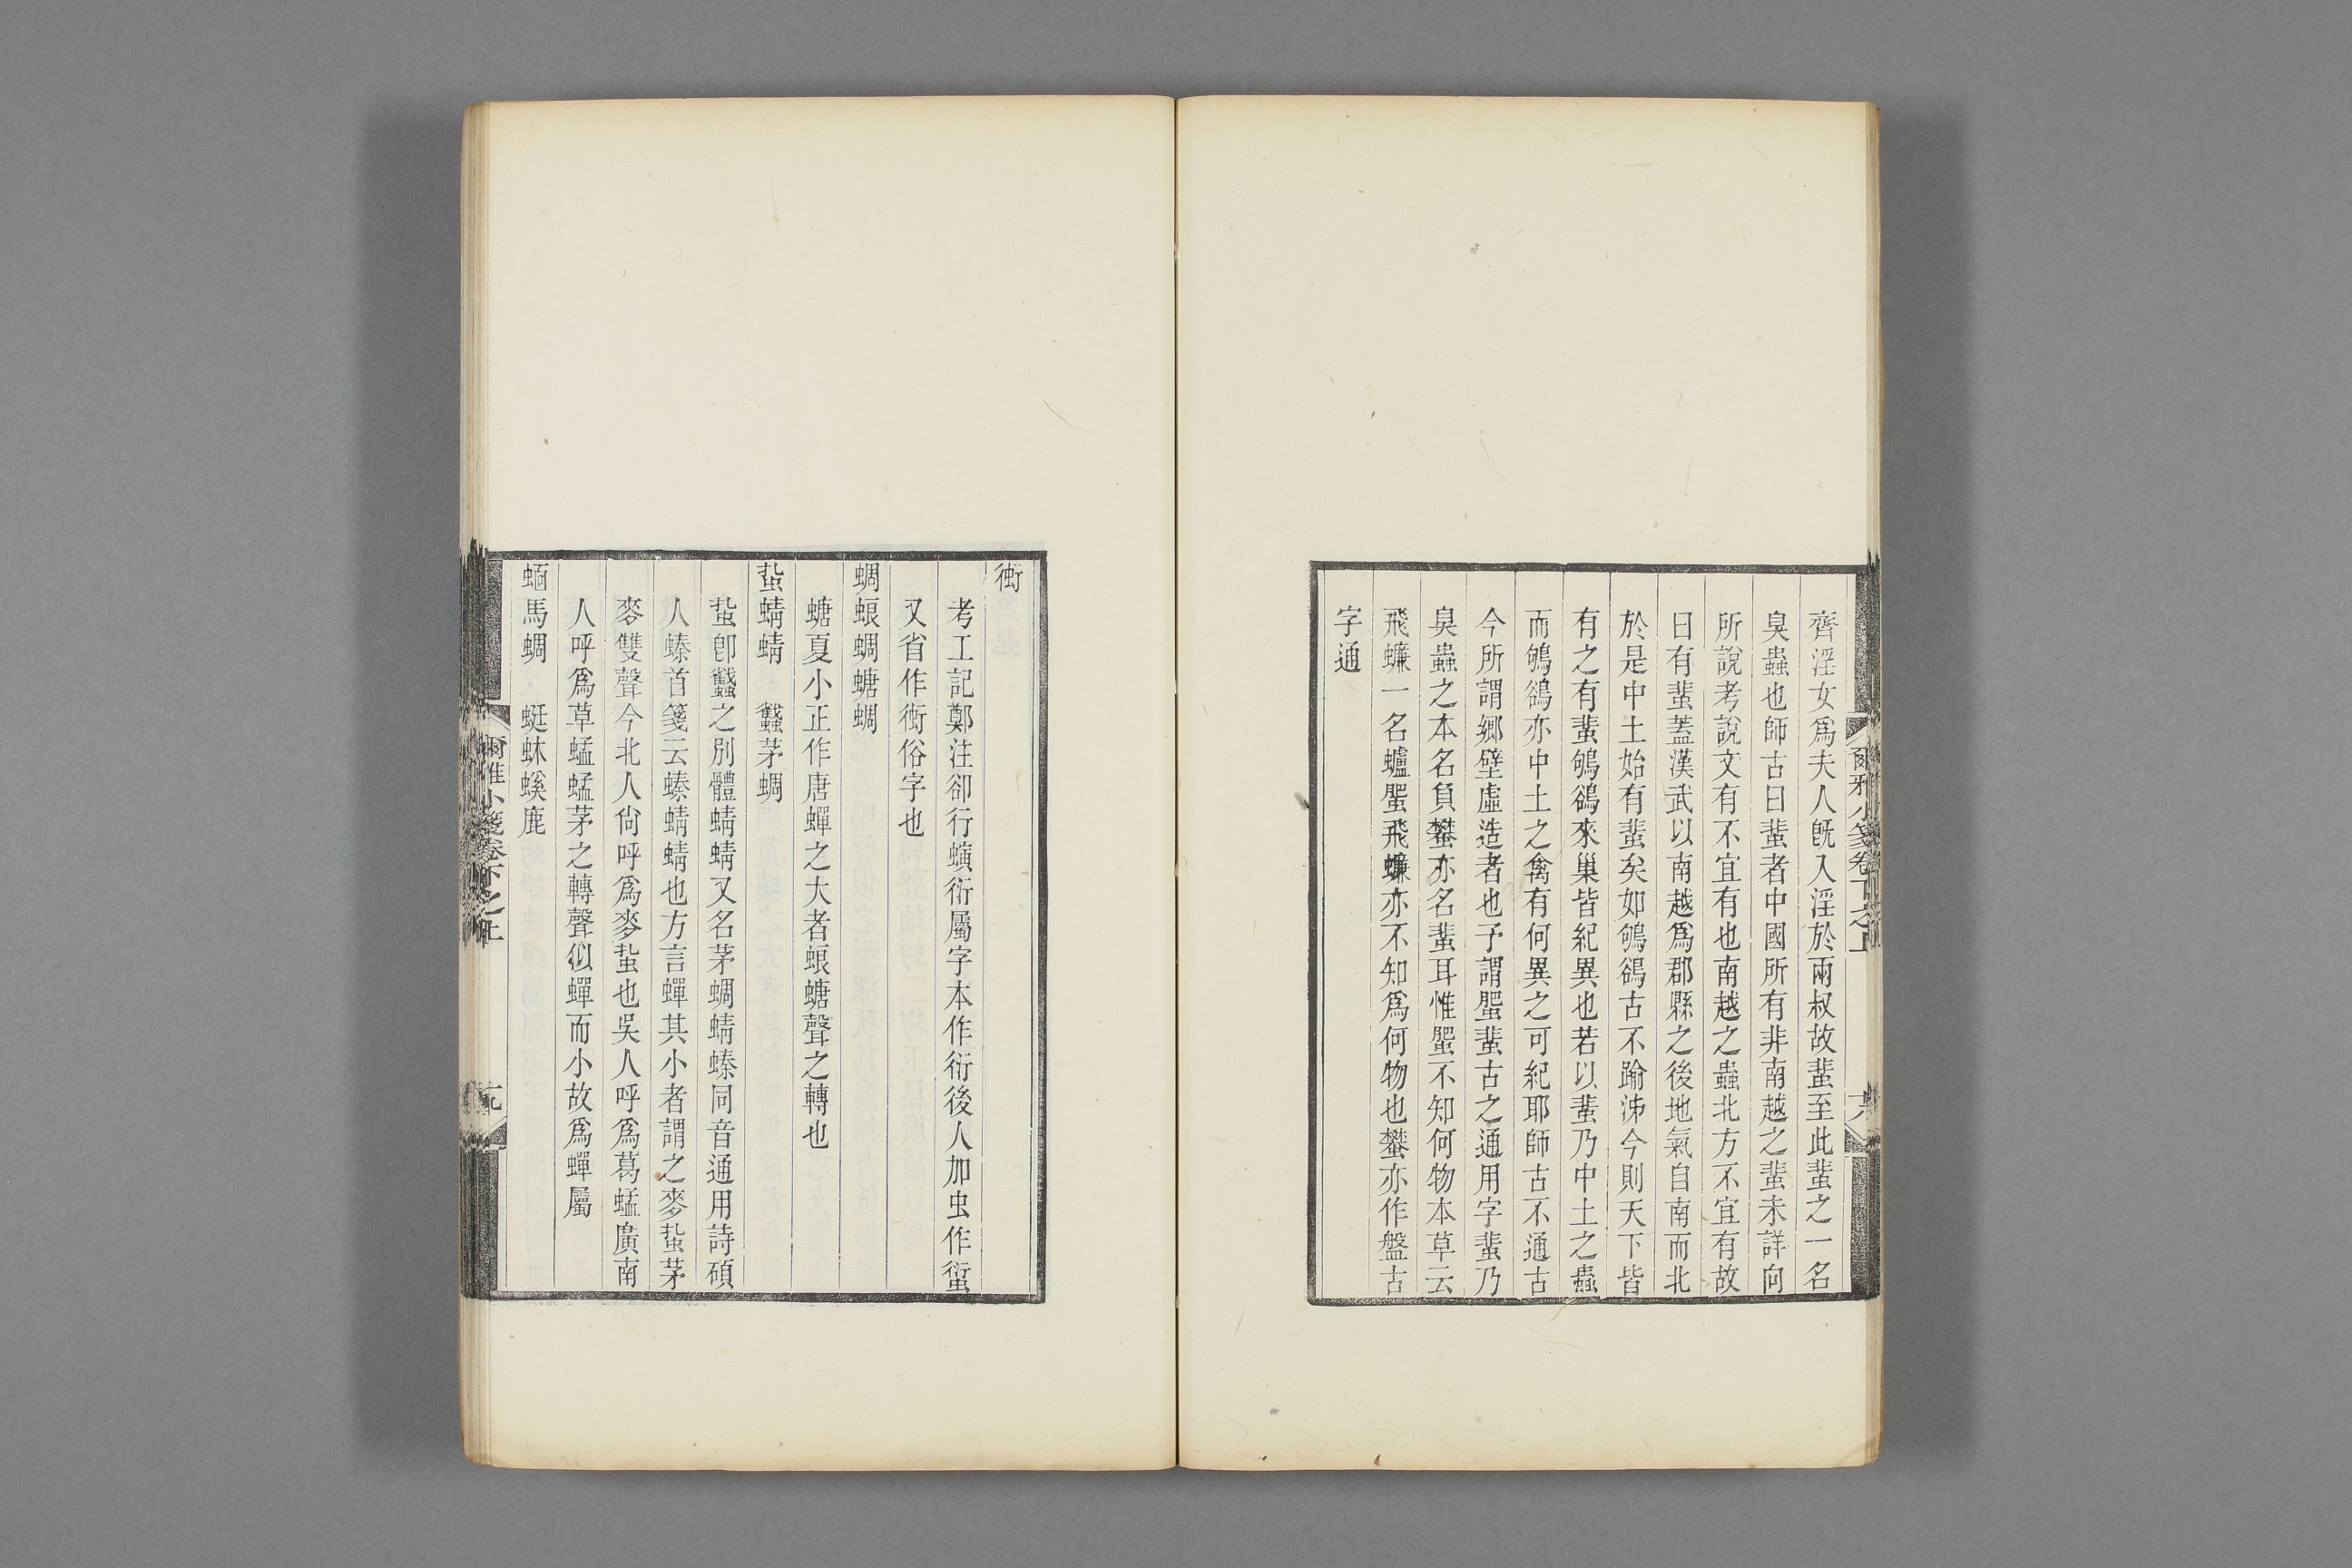 齊淫女爲夫人旣入淫於兩叔故蜚至此蜚之一名
臭蟲也師古曰蜚者中國所有非南越之蜚未詳向
所說考說文有不宜有也南越之蟲北方不宜有故
曰有蜚蓋漢武以南越爲郡縣之後地氣自南而北
於是中土始有蜚矣如鴝鵒古不踰泲今則天下皆
有之有蜚鴝鵒來巢皆紀異也若以蜚乃中土之蟲
而鴝鵒亦中土之禽有何異之可紀耶師古不通古
今所謂鄉壁虛造者也予謂蜰蜚古之通用字蜚乃
臭蟲之本名負蠜亦名蜚耳惟蜰不知何物本草云
飛蠊一名蠦蜰飛蠊亦不知爲何物也蠜亦作盤古
字通
爾雅小箋卷下之上
十八
衝
考工記鄭注卻行螾衍屬字本作衍後人加虫作
又省作衝俗字也
蜩蜋蜩螗蜩
螗夏小正作唐蟬之大者蜋螗聲之轉也
蚻蜻蜻　蠽茅蜩
蚻卽蠽之別體蜻蜻又名茅蜩蜻螓同音通用詩碩
人螓首箋云螓蜻蜻也方言蟬其小者謂之麥蚻茅
麥雙聲今北人尙呼爲麥蚻也吳人呼爲葛蜢廣南
人呼爲草蜢蜢茅之轉聲似蟬而小故爲蟬屬
蝒馬蜩　蜓蚞螇鹿
爾雅小箋卷下之上
十九